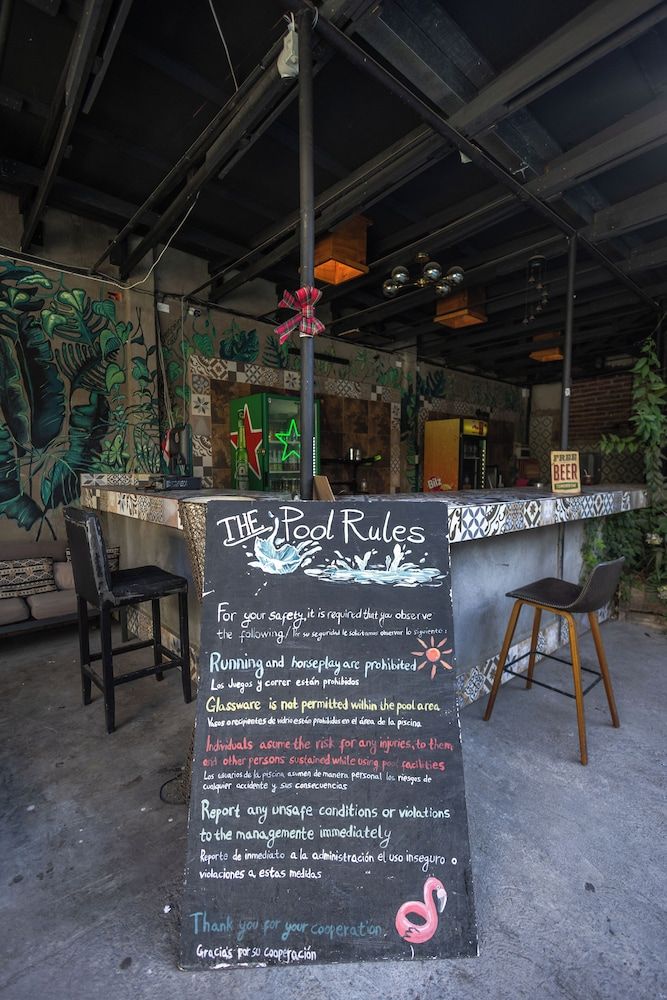 Bilz
FREE
BEER
THE Pool Rules
For your safety, it is required that you observe
the following/ Por su seguridad le solicitamos observar lo siguiente:
Running and horseplay are prohibited
Los Juegos y correr están prohibidos
Glassware is not permitted within the pool area
Vasos o recipientes de vidrio están prohibidos en el área de la piscina
Individuals asume the risk for any injuries, to them
and other persons sustained while using pool facilities
Los usuarios de la piscina asumen de manera personal los riesgos de
cualquier accidente y sus consecuencias
Report any unsafe conditions or violations
to the managemente immediately
Reporte de inmediato a la administración el uso inseguro o
violaciones a estas medidas
Thank you for your cooperation.
Gracias por su cooperación